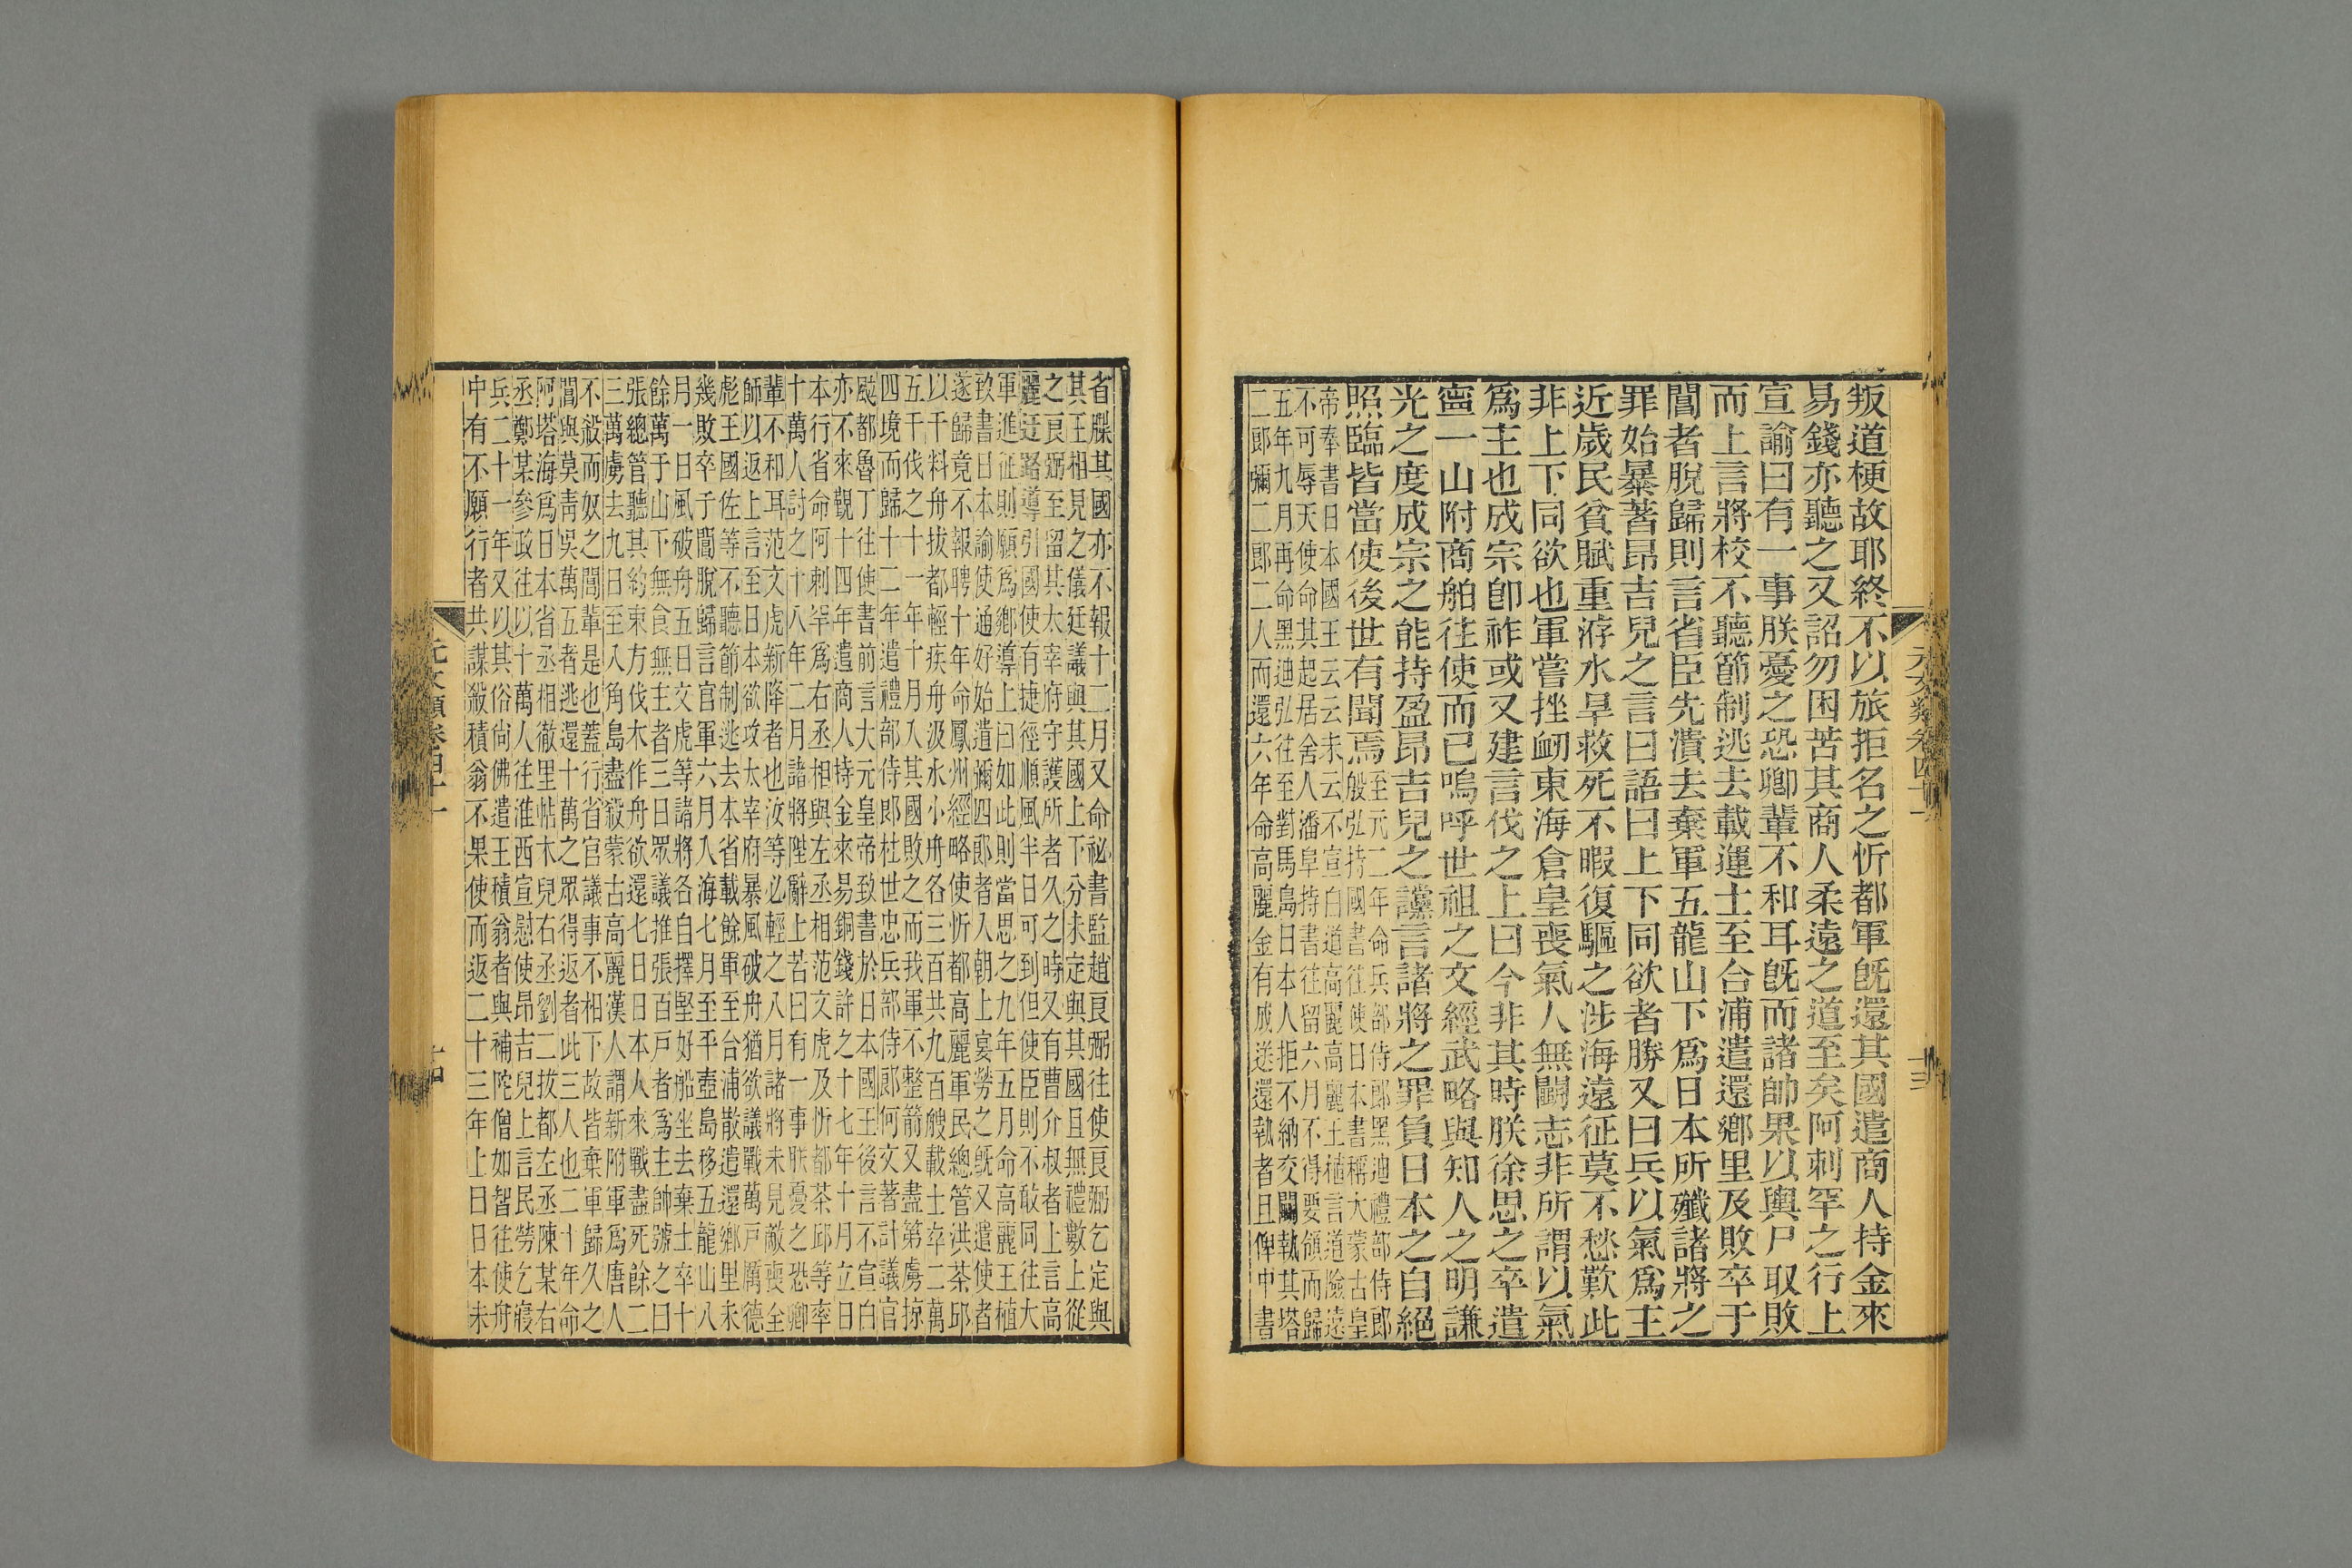 叛道梗故耶終不以旅拒名之忻都軍旣還其國遣商人持金來
易錢亦聽之又詔勿困苦其商人柔遠之道至矣阿刺罕之行上
宣諭曰有一事朕憂之恐卿輩不和耳旣而諸帥果以輿尸取敗
而上言將校不聽節制逃去載運士至合浦遣還鄉里及敗卒于
閶者脫歸則言省臣先潰去棄軍五龍山下爲日本所殲諸將之
罪始暴著昂吉兒之言曰語曰上下同欲者勝又曰兵以氣爲主
近歲民貧賦重洊水旱救死不暇復驅之涉海遠征莫不愁歎此
非上下同欲也軍嘗挫衂東海倉皇喪氣人無鬪志非所謂以氣
爲主也成宗卽祚或又建言伐之上曰今非其時朕徐思之卒遣
寧一山附商舶往使而已嗚呼世祖之文經武略與知人之明謙
光之度成宗之能持盈昂吉兒之讜言諸將之罪負日本之自絕
照臨皆當使後世有聞焉
至元二年命兵部侍郎黑迪禮部侍郎
殷弘持國書往使日本書稱大蒙古皇
帝奉書日本國王云云未云不宣白道高麗高麗王植言道險遠
不可辱天使命其起居舍人潘阜持書往留六月不得要領而歸
五年九月再命黑迪弘往至對馬島日本人拒不納交鬭執其塔
二郎彌二郎二人而還六年命高麗金有成送還執者且俾中書
省牒其國亦不報十二月又命祕書監趙良弼往使良弼乞定與
其王相見之儀廷議與其國上下分未定與其國且無禮數上從
之良弼至留其太宰府守護所者久之時又有曹介叔者上言高
麗迂路導引國使有捷徑順風半日可到但使臣則不敢同往大
軍進征則願爲鄉導上曰如此則當思之九年五月命高麗王植
致書日本諭使通好始遣彌四郎者入朝上宴勞之旣又遣使者
遂歸竟不報聘十年命鳳州經略使忻都高麗軍民總管洪茶邱
以千料舟拔都輕疾舟汲水小舟各三百共九百艘載士卒二萬
五千伐之十一年十月入其國敗之而我軍不整箭又盡第虜掠
四境而歸十二年遣禮部侍郎杜世忠兵部侍郎何文著計議官
撒都魯丁往使書前言大元皇帝致書於日本國王後言不宣白
亦不來覲十四年遣商人持金來易銅錢許之十七年十月立日
本行省命阿刺罕爲右丞相與左丞相范文虎及忻都茶邱等率
十萬人討之十八年二月諸將陛辭上若曰有一事朕憂之恐卿
輩不和耳范文虎新降者也汝等必輕之八月諸將未見敵喪全
師以返上言至日本欲攻太宰府暴風破舟猶欲議戰萬戶厲德
彪王國佐等不聽節制逃去本省載餘軍至合浦散遣還鄉里未
幾敗卒于閶脫歸言官軍六月入海七月至平壺島移五龍山八
月一日風破舟五日文虎等諸將各自擇堅好船坐去棄士卒十
餘萬于山下無食無主者三日眾議推張百戶者爲主帥號之曰
張總管聽其約束方伐木作舟欲還七日日本人來戰盡死餘二
三萬虜去九日至八角島盡殺蒙古高麗漢人謂新附軍爲唐人
不殺而奴之閶輩是也蓋行省官議事不相下故皆棄軍歸久之
閶與莫靑吳萬五者逃還十萬之眾得返者此三人也二十年命
阿塔海爲日本省丞相徹里帖木兒右丞劉二拔都左丞陳某右
丞鄭某參政往以十萬人往淮西宣慰使昂吉兒上言民勞乞寢
兵二十一年又以其俗尙佛遣王積翁者與補陀僧如智往使舟
中有不願行者共謀殺積翁不果使而返二十三年上曰日本未
元文類卷四十一
十三
元文類卷四十一
十四